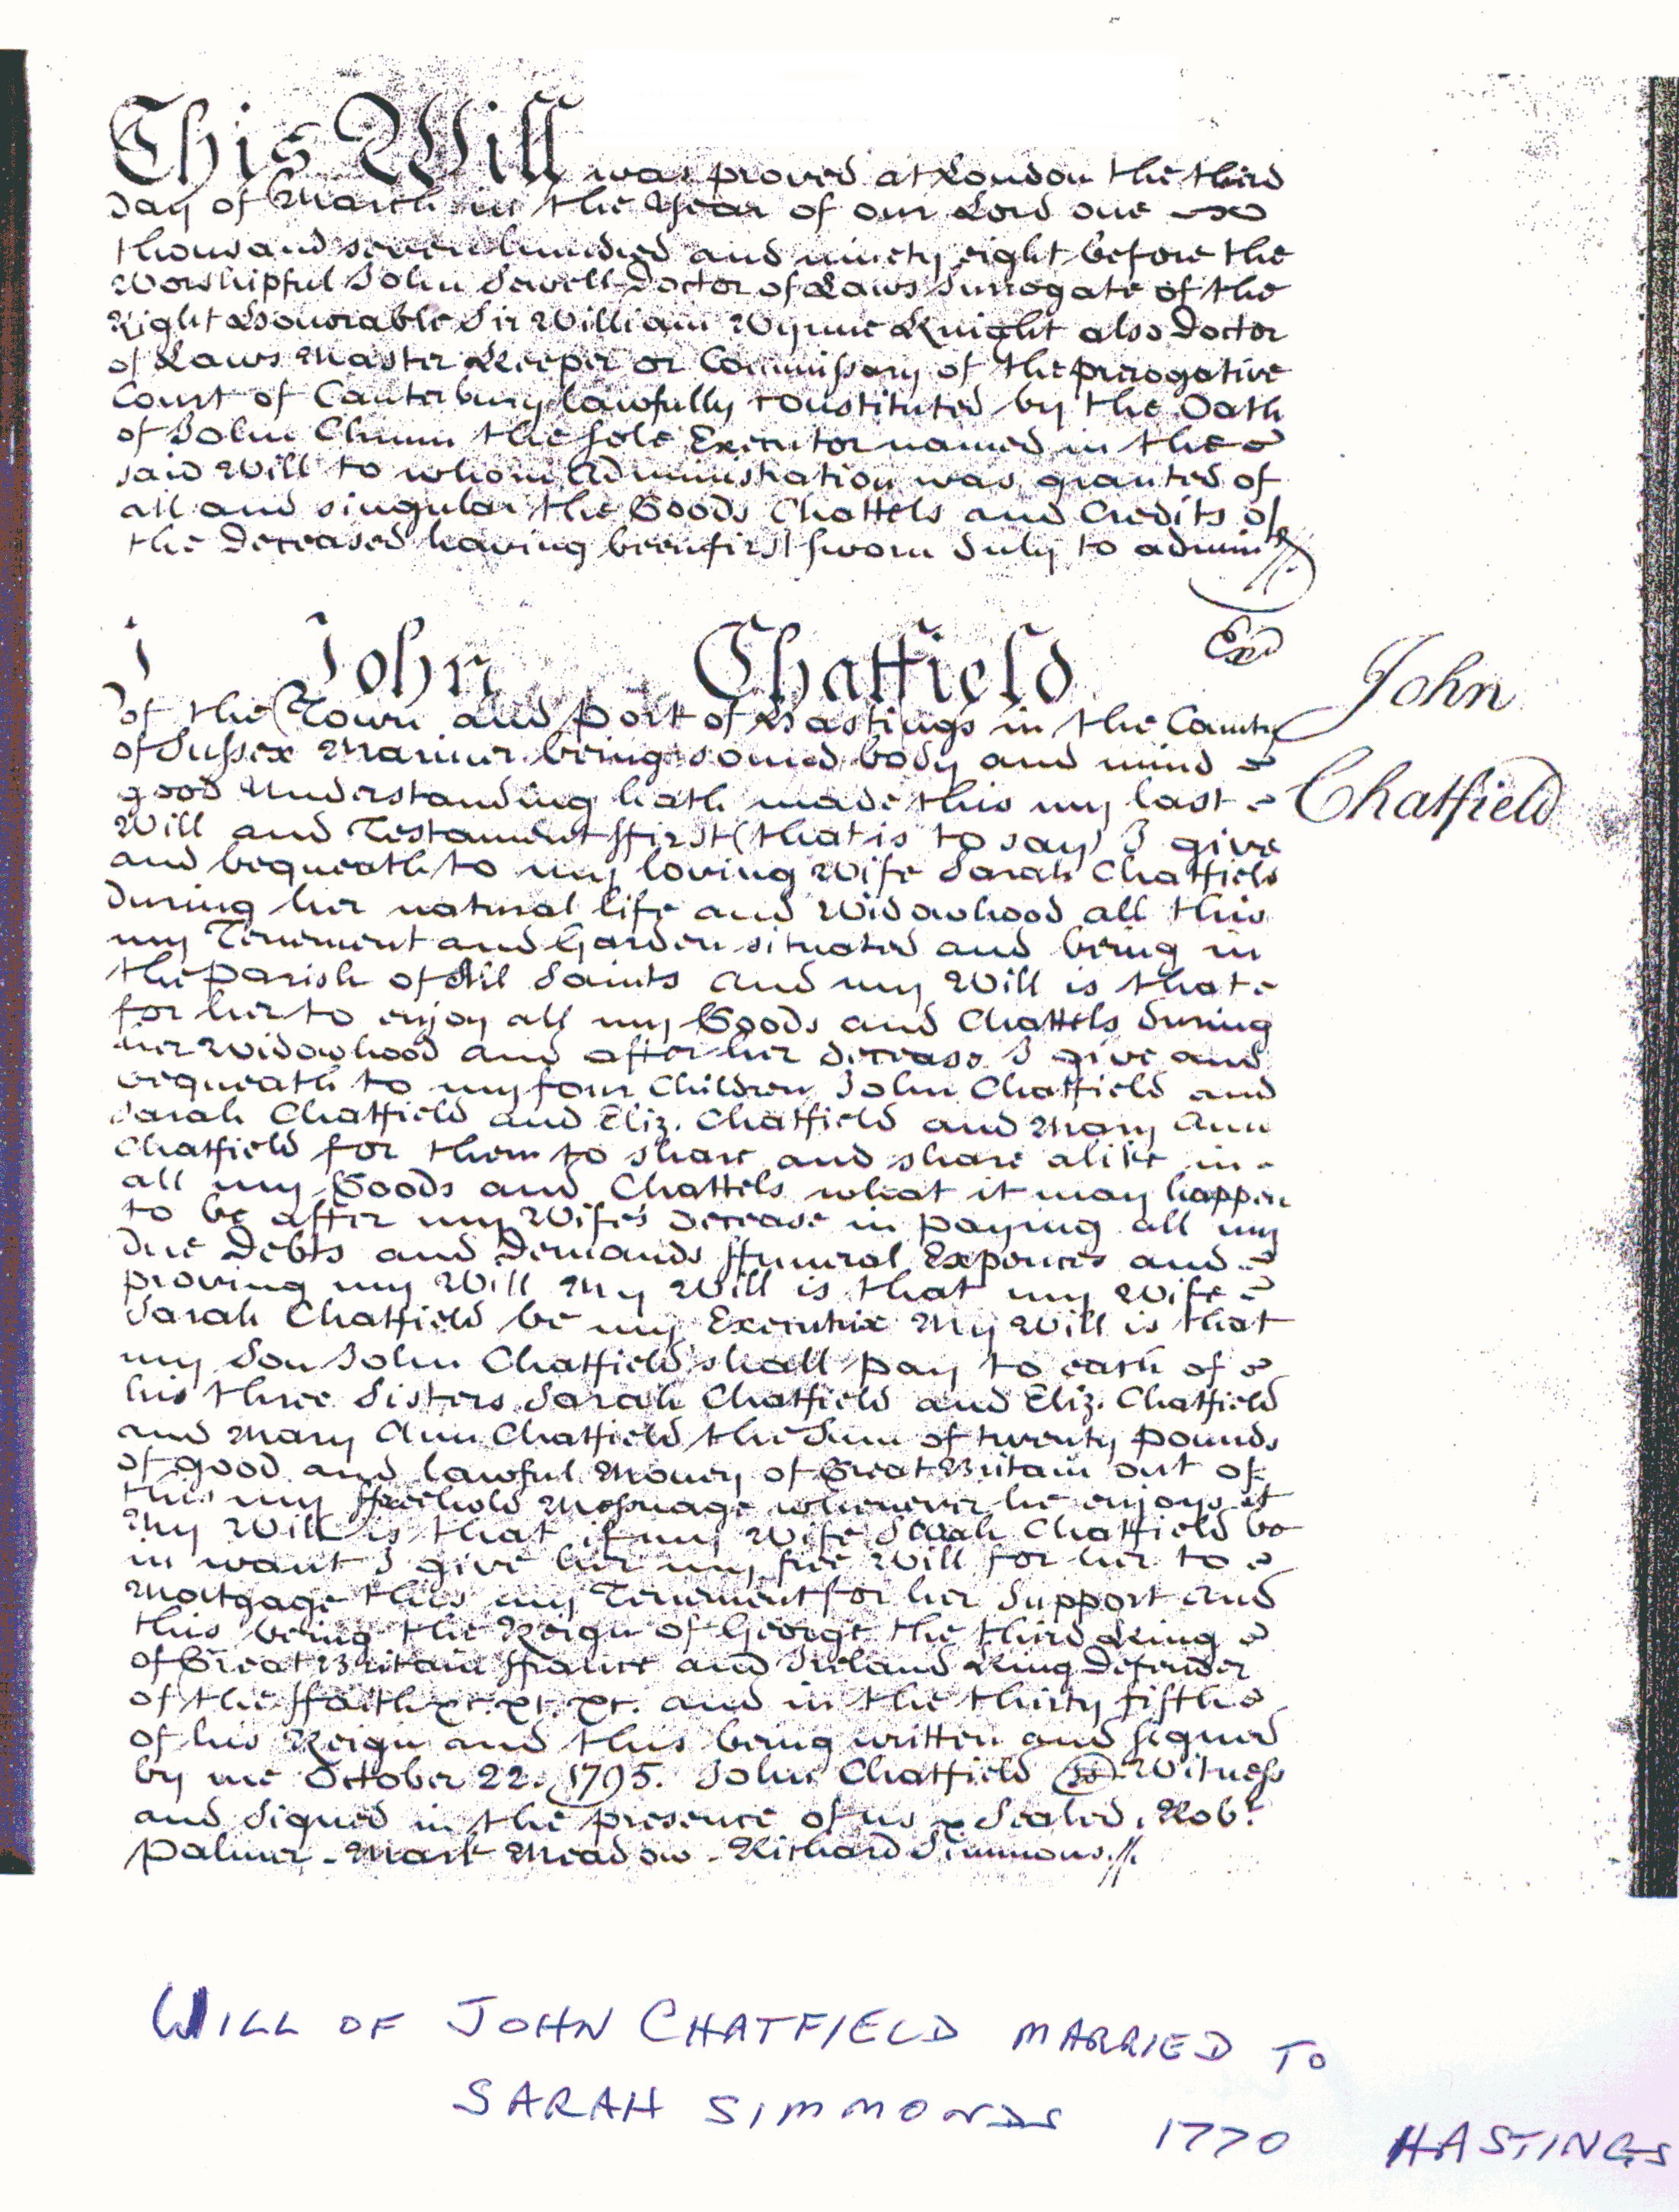 This Will was proved at London the third
day of March in the Year of our Lord one
thousand seven hundred and ninety eight before the
Worshipful John Sewell Doctor of Laws Surrogate of the
Right Honourable Sir William Wynne Knight also Doctor
of Laws Master Keeper or Commissary of the prerogative
Court of Canterbury lawfully constituted by the Oath
of John Chinn the sole Executor named in the
said Will to whom Administration was granted of
all and singular the Goods Chattels and Credits of
the deceased having been first sworn duly to admin
Exd
I John Chatfield
John
Chatfield
of the Town and port of Hastings in the County
of Sussex Mariner being sound body and mind
good Understanding hath made this my last
Will and Testament ffirst (that is to say) I give
and bequeath to my loving Wife Sarah Chatfield
during her natural life and Widowhood all this
my Tenement and Garden situated and being in
the parish of All Saints and my Will is that
for her to enjoy all my Goods and Chattels during
her Widowhood and after her decease I give and
bequeath to my four Children John Chatfield and
Sarah Chatfield and Eliz. Chatfield and Mary Ann
Chatfield for them to share and share alike in
all my Goods and Chattels what it may happen
to be after my Wife's decease in paying all my
due Debts and Demands ffuneral Expences and
proving my Will My Will is that my Wife
Sarah Chatfield be my Executrix My Will is that
my Son John Chatfield shall pay to each of
his three Sisters Sarah Chatfield and Eliz. Chatfield
and Mary Ann Chatfield the Sum of twenty pounds
of good and lawful Money of Great Britain out of
this my ffreehold Messuage whenever he enjoys it
My Will is that if my Wife Sarah Chatfield be
in want I give her my free Will for her to
Mortgage this my Tenement for her Support and
this being the Reign of George the third King
of Great Britain ffrance and Ireland King Defender
of the ffaith &c. &c. &c. and in the thirty fifth
of his Reign and this being written and signed
by me October 22. 1795. John Chatfield (LS) Witness
and Signed in the presence of us & Sealed. Robt.
Palmer - Mark Meadow - Richard Simmons.//
WILL OF JOHN CHATFIELD MARRIED TO
SARAH SIMMONDS 1770 HASTINGS